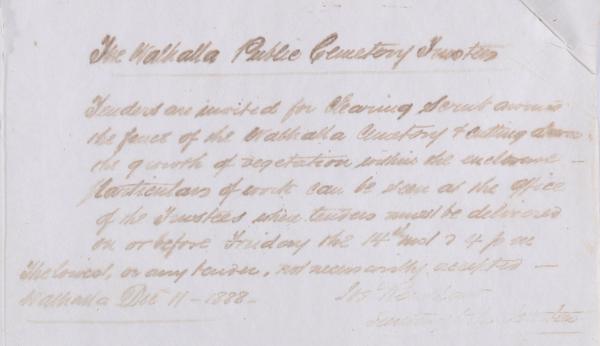 The Walhalla Public Cemetery Trustees
Tenders are invited for Clearing Scrub around
the fence of the Walhalla Cemetery & cutting down
the growth of vegetation within the enclosure —
Particulars of work can be seen at the office
of the Trustees where tenders must be delivered
on or before Friday the 14th inst 4 p m
The lowest, or any tender, not necessarily accepted —
Walhalla Dec 11 - 1888 -